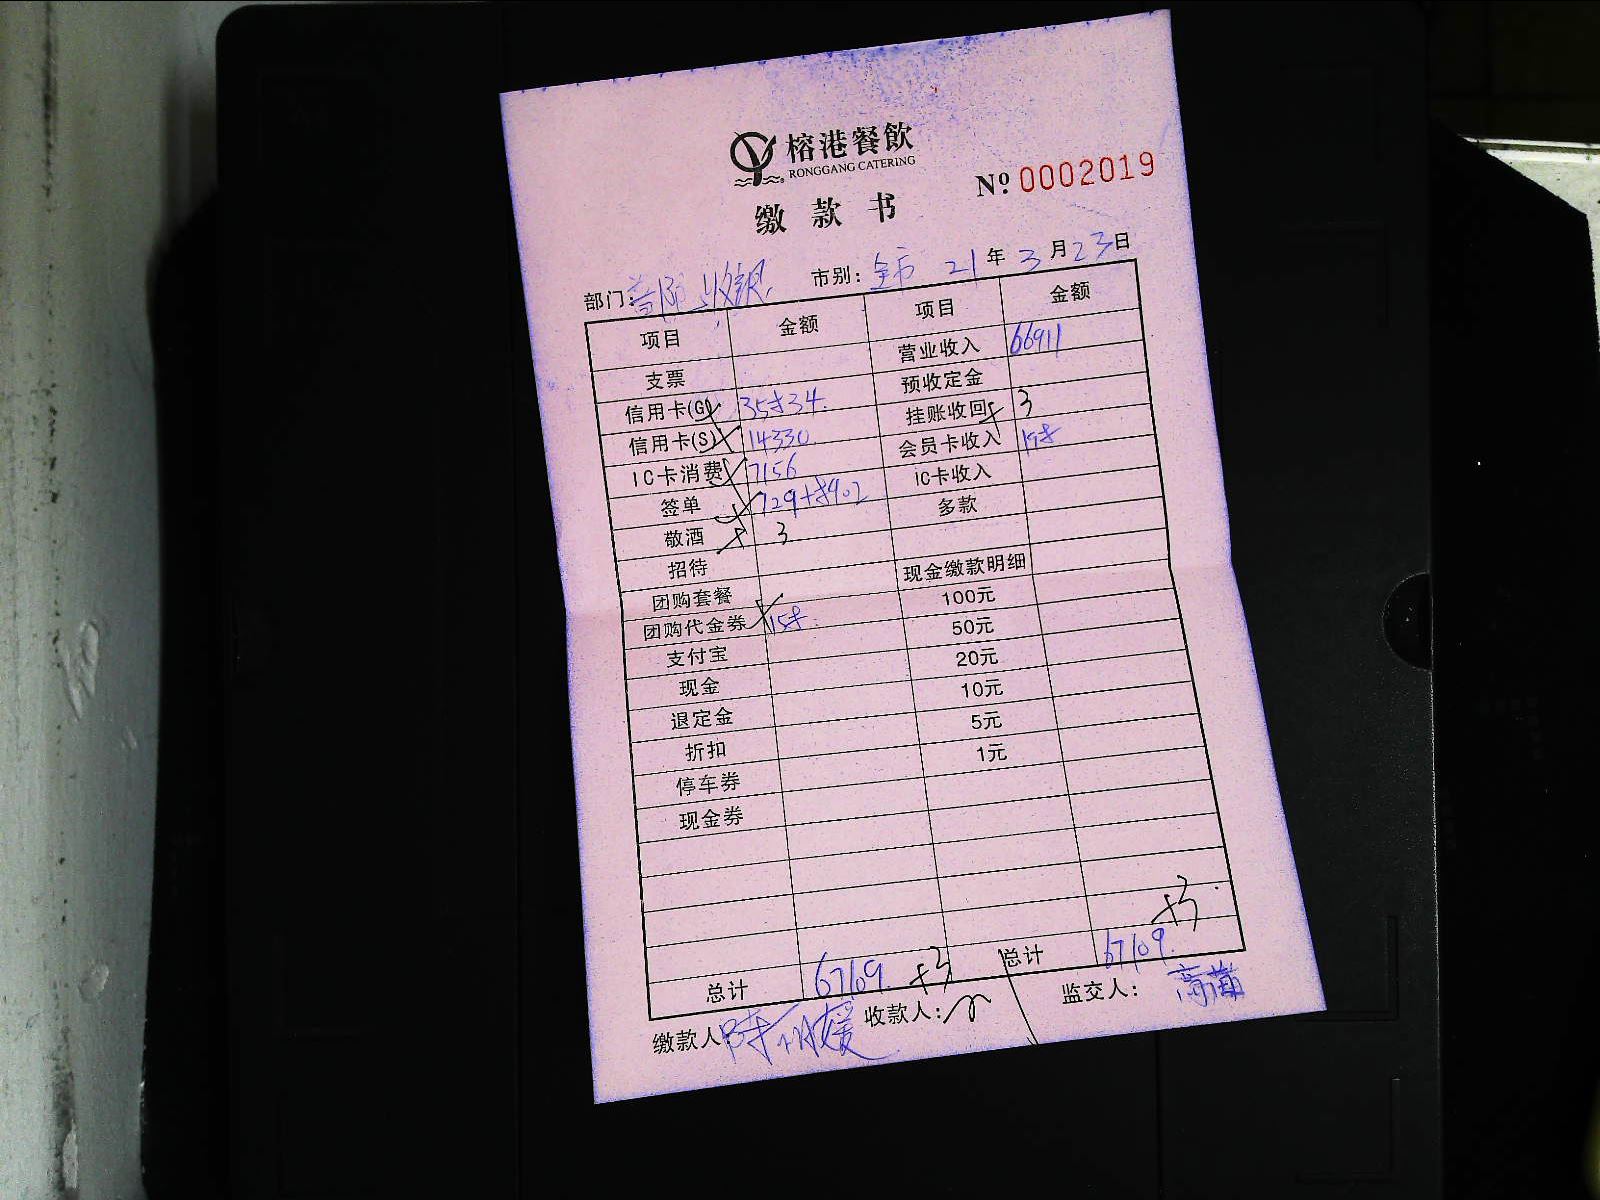 榕港餐飲
RONGGANG CATERING
缴款书 Nº 0002019
部门: 收银 市别: 全市 21年3月23日
项目 金额 项目 金额
支票 营业收入 66911
信用卡(G) 35834 预收定金
信用卡(S) 14330 挂账收回 3
IC卡消费 7156 会员卡收入 198
签单 729+8902 IC卡收入
敬酒 3 多款
招待
团购套餐 现金缴款明细
团购代金券 158 100元
支付宝 50元
现金 20元
退定金 10元
折扣 5元
停车券 1元
现金券
总计 67109 +3 总计 67109 +3
缴款人: 收款人: 监交人: